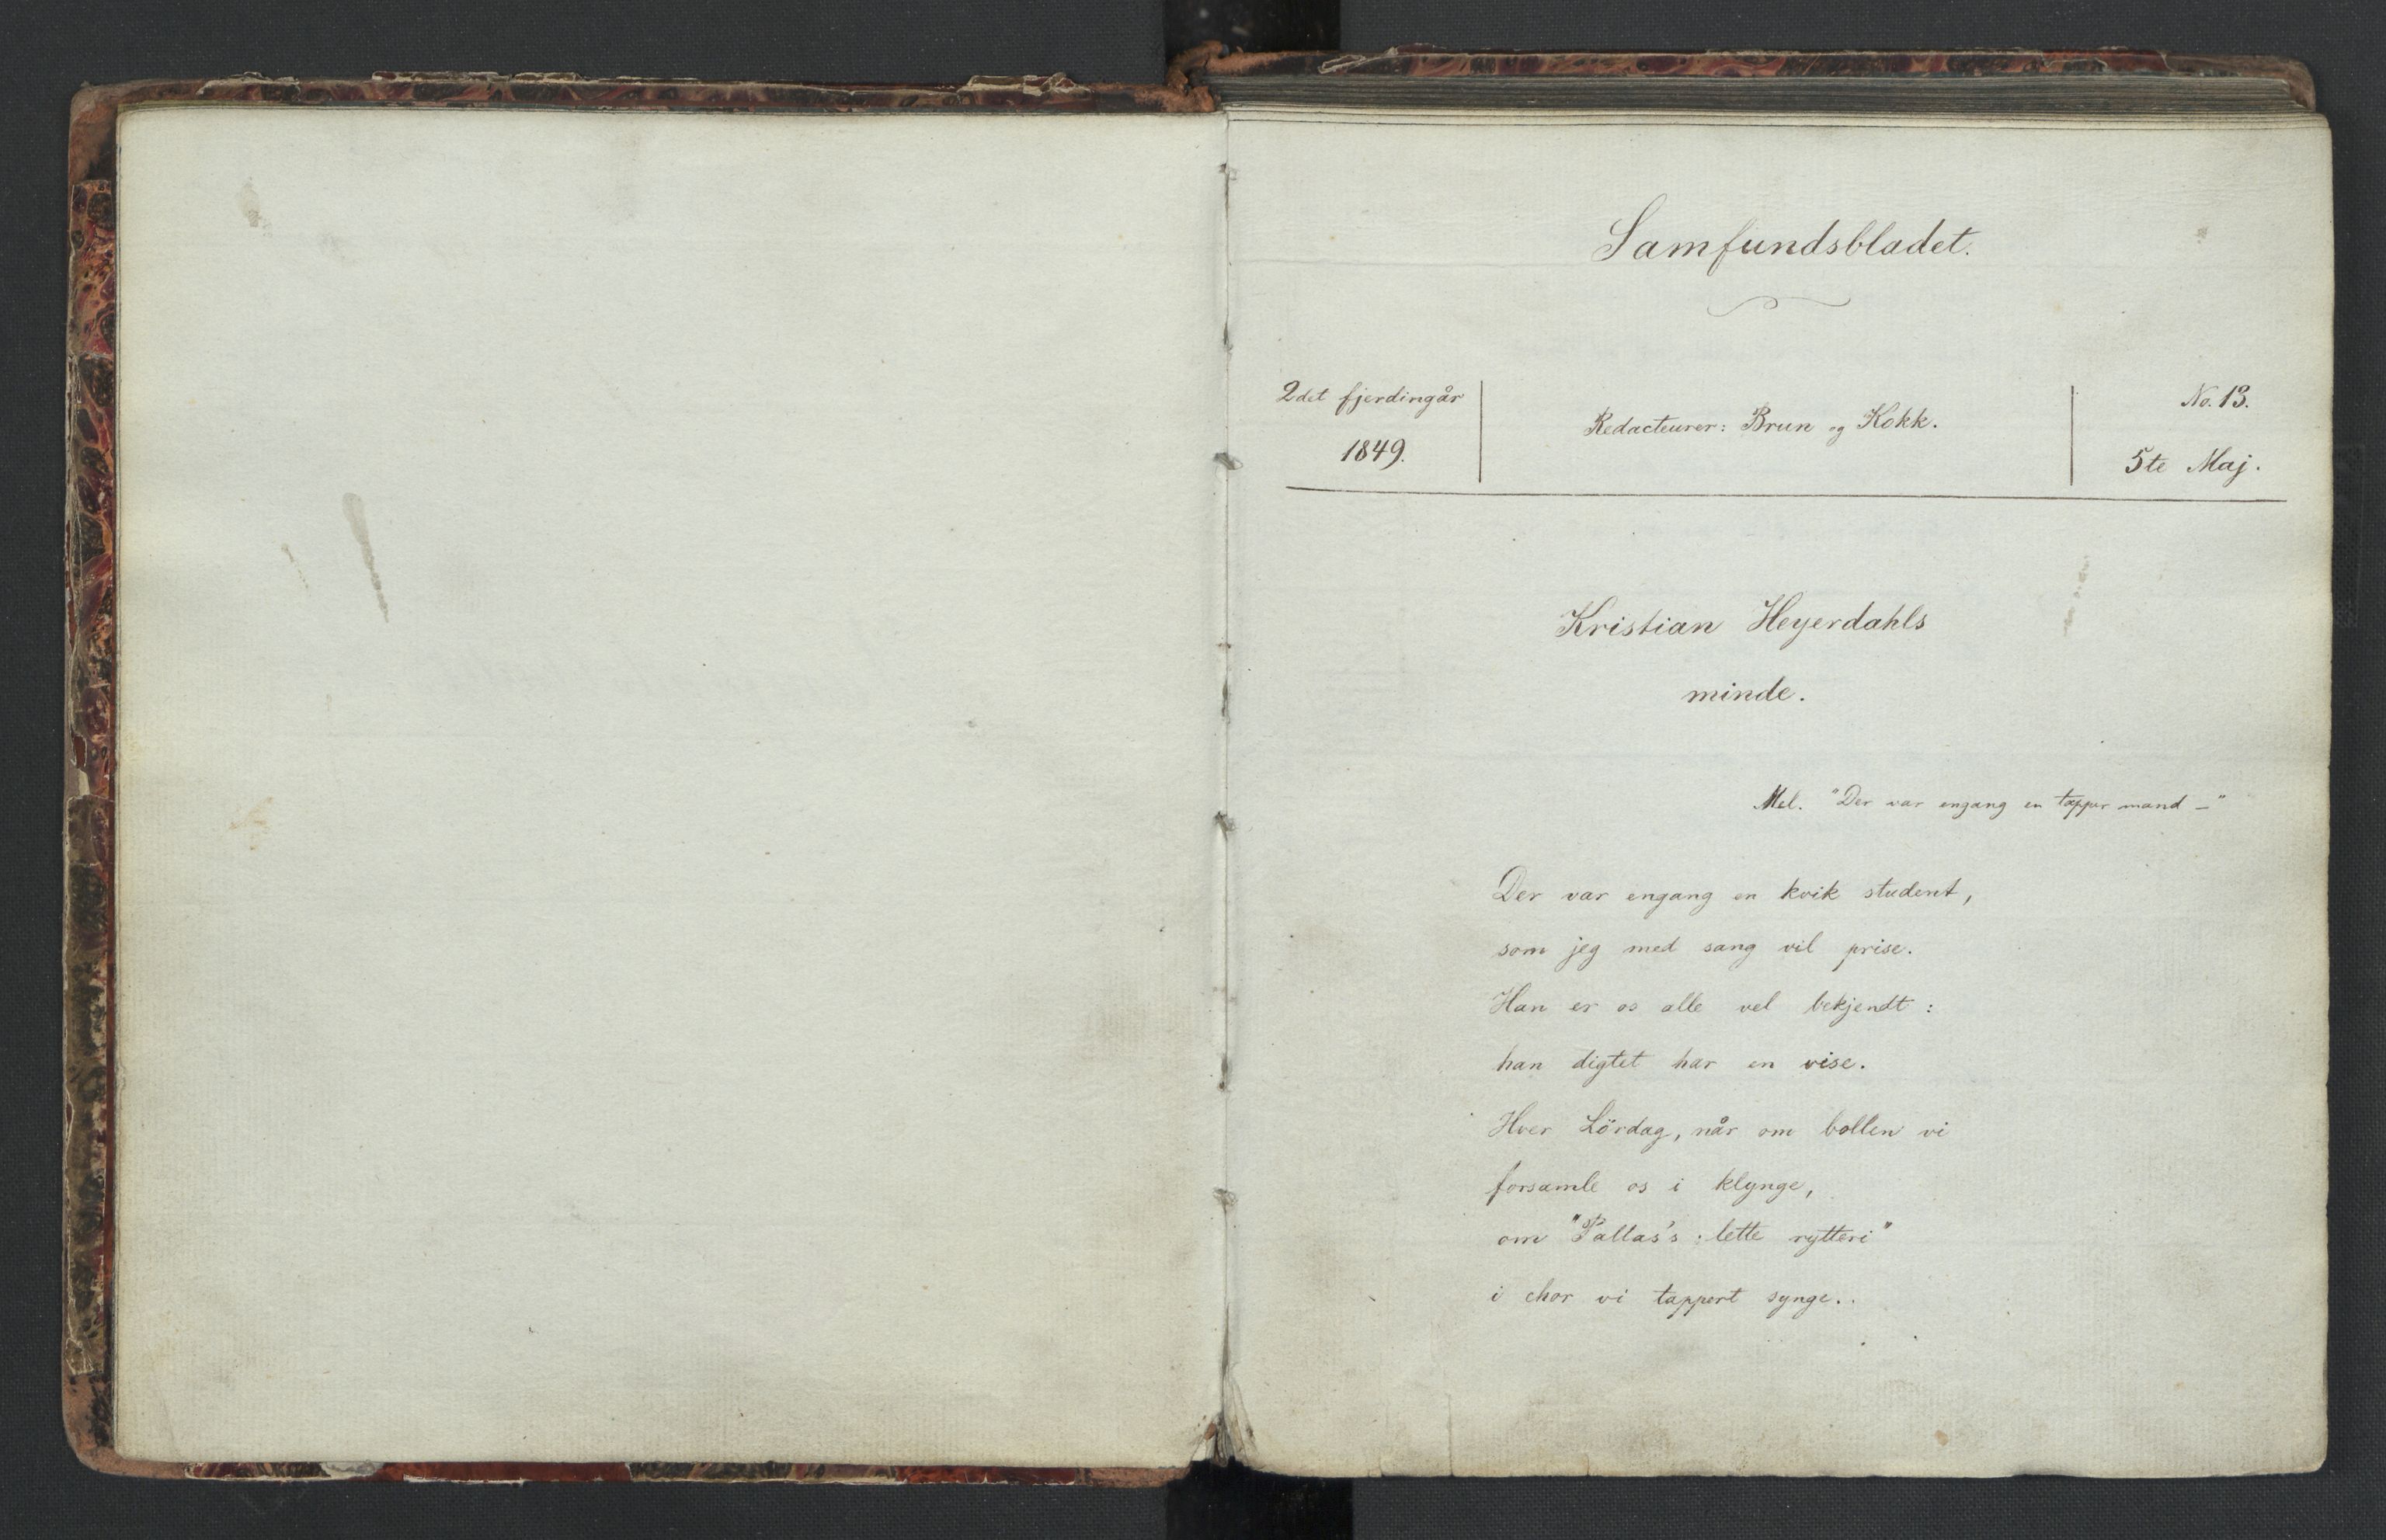 Samfundsbladet.
2det fjerdingår
1849.
Redacteurer: Brun og Kokk.
No. 13.
5te Maj.
Kristian Heyerdahls
minde.
Mel. "Der var engang en tapper mand –"
Der var engang en kvik student,
som jeg med sang vil prise.
Han er os alle vel bekjendt:
han digtet har en vise.
Hver Lördag, når om bollen vi
forsamle os i klynge,
om "Pallas's lette rytteri"
i chor vi tappert synge.